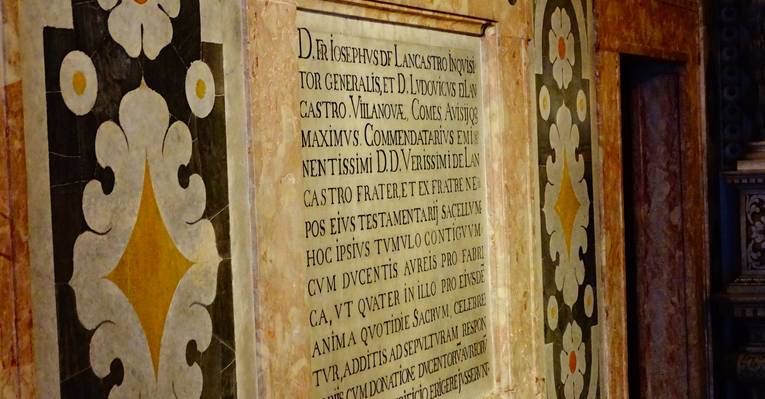 D. FR IOSEPHVS DE LANCASTRO INQVISI
TOR GENERALIS, ET D. LVDOVICVS D LAN
CASTRO. VILLANOVÆ, COMES AVISIJ Q3
MAXIMVS. COMMENDATARIVS EMI
NENTISSIMI D. D. VERISSIMI DE LAN
CASTRO FRATER, ET EX FRATRE NE
POS EIVS TESTAMENTARIJ SACELLVM
HOC IPSIVS TVMVLO CONTIGVVM
CVM DVCENTIS AVREIS PRO FABRI
CA, VT QVATER IN ILLO PRO EIVSDĒ
ANIMA QVOTIDIE SACRVM, CELEBRE
TVR, ADDITIS AD SEPVLTVRAM RESPON
CVM DONATIONE DVCENTORV̄ AVREORV̄
ERIGERE JVSSERVN